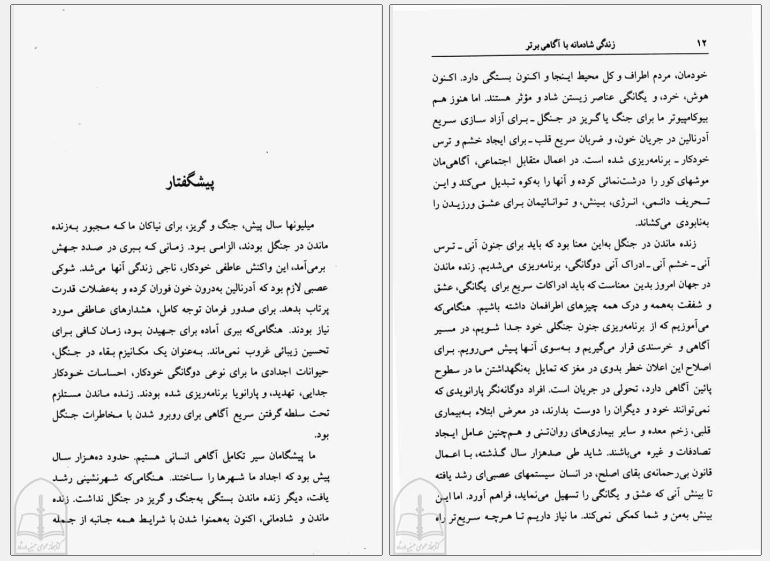 پیشگفتار
میلیونها سال پیش، جنگ و گریز، برای نیاکان ما که مجبور به‌زنده
ماندن در جنگل بودند، الزامی بود. زمانی که ببری در صدد جهش
برمی‌آمد، این واکنش عاطفی خودکار، ناجی زندگی آنها می‌شد. شوکی
عصبی لازم بود که آدرنالین به‌درون خون فوران کرده و به‌عضلات قدرت
پرتاب بدهد. برای صدور فرمان توجه کامل، هشدارهای عاطفی مورد
نیاز بودند. هنگامی‌که ببری آماده برای جهیدن بود، زمان کافی برای
تحسین زیبائی غروب نمی‌ماند. به‌عنوان یک مکانیزم بقاء در جنگل،
حیوانات اجدادی ما برای نوعی دوگانگی خودکار، احساسات خودکار
جدایی، تهدید، و پارانویا برنامه‌ریزی شده بودند. زنده ماندن مستلزم
تحت سلطه گرفتن سریع آگاهی برای روبرو شدن با مخاطرات جنگل
بود.
ما پیشگامان سیر تکامل آگاهی انسانی هستیم. حدود ده‌هزار سال
پیش بود که اجداد ما شهرها را ساختند. هنگامی‌که شهرنشینی رشد
یافت، دیگر زنده ماندن بستگی به‌جنگ و گریز در جنگل نداشت. زنده
ماندن و شادمانی، اکنون به‌همنوا شدن با شرایط همه جانبه از جمله
۱۲ زندگی شادمانه با آگاهی برتر
خودمان، مردم اطراف و کل محیط اینجا و اکنون بستگی دارد. اکنون
هوش، خرد، و یگانگی عناصر زیستن شاد و مؤثر هستند. اما هنوز هم
بیوکامپیوتر ما برای جنگ یا گریز در جنگل ـ برای آزاد سازی سریع
آدرنالین در جریان خون، و ضربان سریع قلب ـ برای ایجاد خشم و ترس
خودکار ـ برنامه‌ریزی شده است. در اعمال متقابل اجتماعی، آگاهی‌مان
موشهای کور را درشت‌نمائی کرده و آنها را به‌کوه تبدیل می‌کند و این
تحریف دائمی، انرژی، بینش، و توانائیمان برای عشق ورزیدن را
به‌نابودی می‌کشاند.
زنده ماندن در جنگل به‌این معنا بود که باید برای جنون آنی ـ ترس
آنی ـ خشم آنی ـ ادراک آنی دوگانگی، برنامه‌ریزی می‌شدیم. زنده ماندن
در جهان امروز بدین معناست که باید ادراکات سریع برای یگانگی، عشق
و شفقت به‌همه و درک همه چیزهای اطرافمان داشته باشیم. هنگامی‌که
می‌آموزیم که از برنامه‌ریزی جنون جنگلی خود جدا شویم، در مسیر
آگاهی و خرسندی قرار می‌گیریم و به‌سوی آنها پیش می‌رویم. برای
اصلاح این اعلان خطر بدوی در مغز که تمایل به‌نگهداشتن ما در سطوح
پائین آگاهی دارد، تحولی در جریان است. افراد دوگانه‌نگر پارانویدی که
نمی‌توانند خود و دیگران را دوست بدارند، در معرض ابتلاء به‌بیماری
قلبی، زخم معده و سایر بیماری‌های روان‌تنی و هم‌چنین عامل ایجاد
تصادفات و غیره می‌باشند. شاید طی صدهزار سال گذشته، با اعمال
قانون بی‌رحمانه‌ی بقای اصلح، در انسان سیستمهای عصبی‌ای رشد یافته
تا بینش آنی که عشق و یگانگی را تسهیل می‌نماید، فراهم آورد. اما این
بینش به‌من و شما کمکی نمی‌کند. ما نیاز داریم تا هرچه سریع‌تر راه